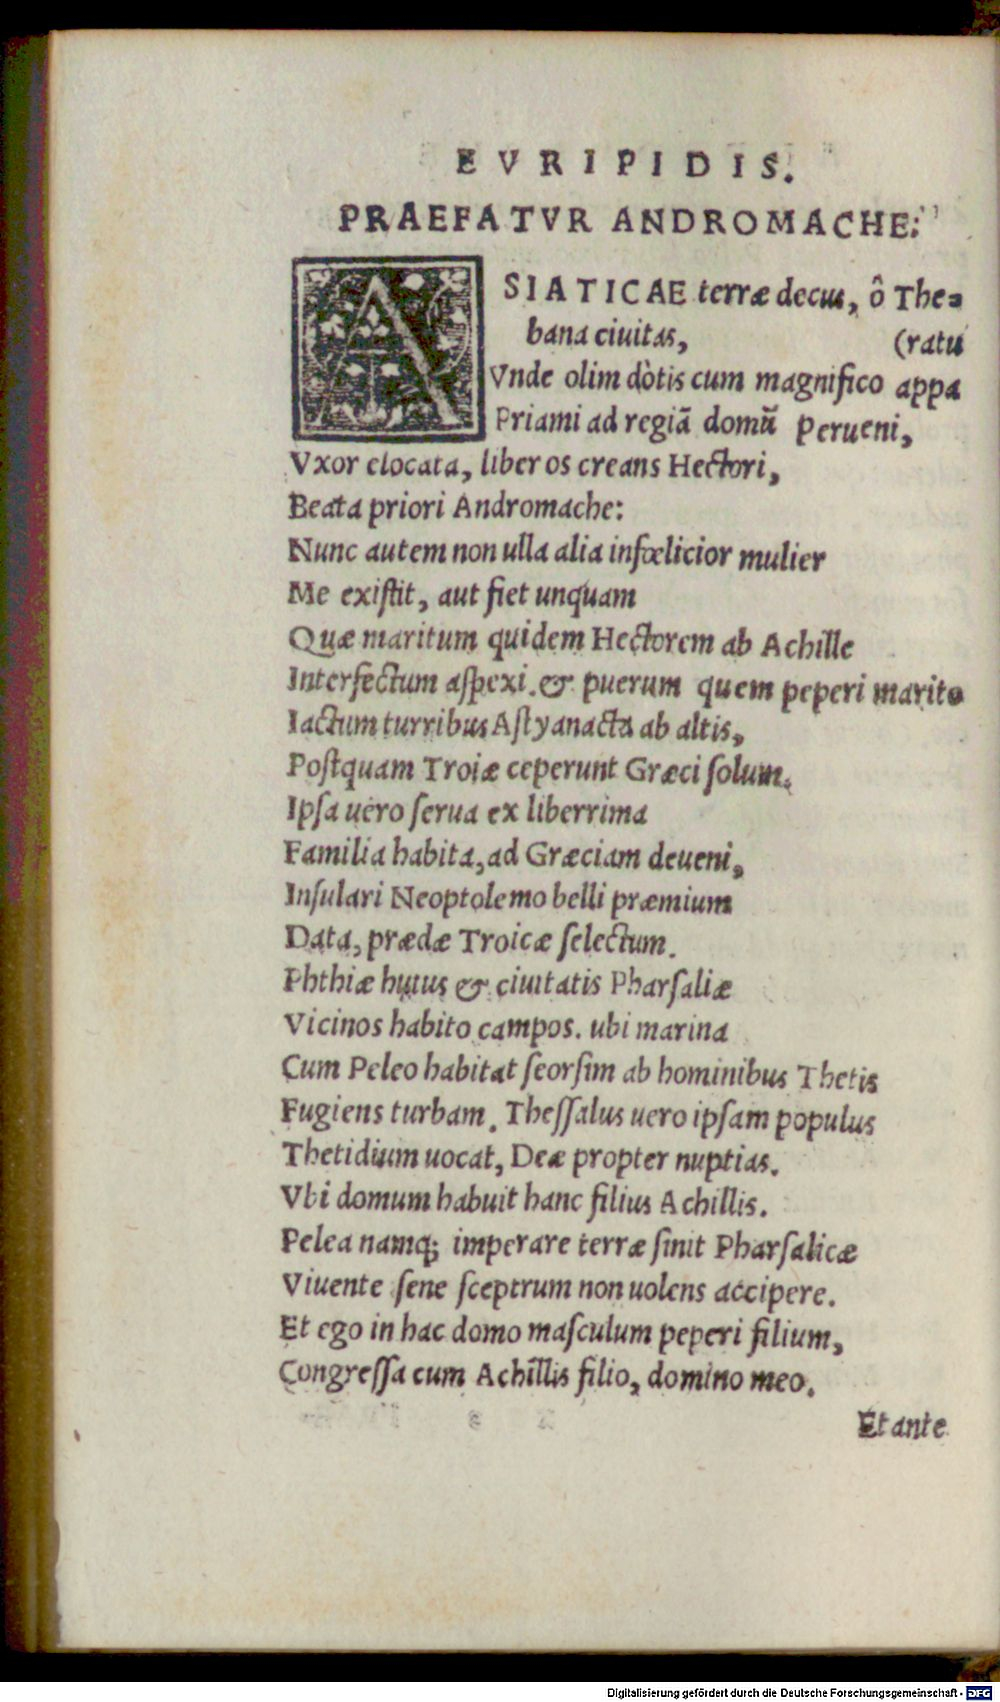 EVRIPIDIS.
PRAEFATVR ANDROMACHE:
ASIATICAE terræ decus, ô The-
bana ciuitas, (ratu
Vnde olim dotis cum magnifico appa
Priami ad regiã domũ perueni,
Vxor elocata, liberos creans Hectori,
Beata priori Andromache:
Nunc autem non ulla alia infœlicior mulier
Me existit, aut fiet unquam
Quæ maritum quidem Hectorem ab Achille
Interfectum aspexi. & puerum quem peperi marito
Iactum turribus Astyanacta ab altis,
Postquam Troiæ ceperunt Græci solum.
Ipsa uero serua ex liberrima
Familia habita, ad Græciam deueni,
Insulari Neoptolemo belli præmium
Data, prædæ Troicæ selectum.
Phthiæ huius & ciuitatis Pharsaliæ
Vicinos habito campos. ubi marina
Cum Peleo habitat seorsim ab hominibus Thetis
Fugiens turbam. Thessalus uero ipsam populus
Thetidium uocat, Deæ propter nuptias.
Vbi domum habuit hanc filius Achillis.
Pelea namq; imperare terræ sinit Pharsalicæ
Viuente sene sceptrum non uolens accipere.
Et ego in hac domo masculum peperi filium,
Congressa cum Achillis filio, domino meo.
Et ante
Digitalisierung gefördert durch die Deutsche Forschungsgemeinschaft - DFG